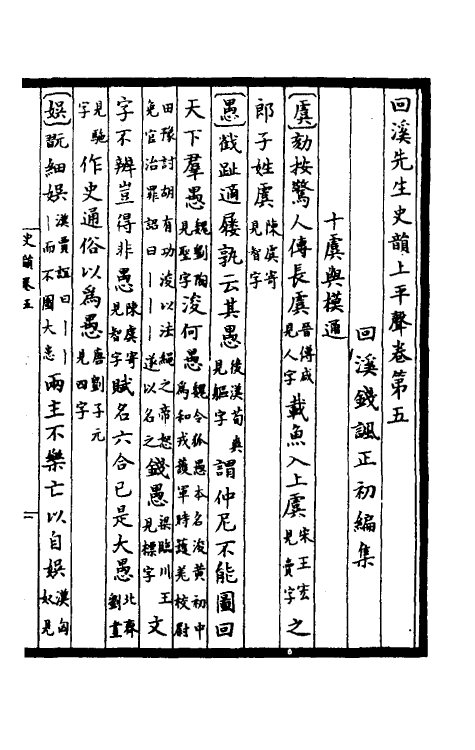 回溪先生史韻上平聲卷第五
回溪錢諷正初編集
十虞與模通
虞 劾按驚人傳長虞 晉傅咸見人字 載魚入上虞 宋王宏見賣字 之
郎子姓虞 陳虞寄見智字
愚 戳趾適屨孰云其愚 後漢荀爽見軀字 謂仲尼不能圖回
天下羣愚 魏劉陶見聖字 浚何愚 魏令狐愚本名浚黄初中為和戎護軍時護羌校尉
田豫討胡有功浚以法繩之帝怒免官治罪詔曰｜｜｜遂以名之 錢愚 梁臨川王見標字 文
字不辨豈得非愚 陳虞寄見智字 賦名六合已是大愚 北齊劉晝
見騐字 作史通俗以為愚 唐劉子元見四字
娛 翫細娛 漢賈誼曰｜｜｜而不圖大患 兩主不樂亡以自娛 漢匈奴見
史韻卷五
一